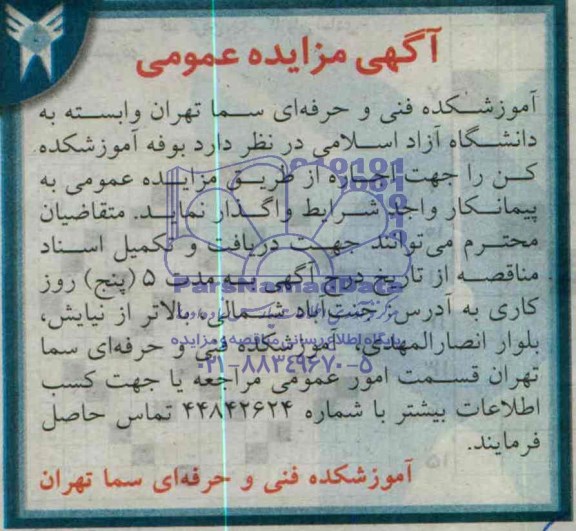 آگهی مزایده عمومی
آموزشکده فنی و حرفه‌ای سما تهران وابسته به
دانشگاه آزاد اسلامی در نظر دارد بوفه آموزشکده
کن را جهت اجاره از طریق مزایده عمومی به
پیمانکار واجد شرایط واگذار نماید. متقاضیان
محترم می‌توانند جهت دریافت و تکمیل اسناد
مناقصه از تاریخ درج آگهی به مدت ۵ (پنج) روز
ParsNamadData
کاری به آدرس: جنت‌آباد شمالی، بالاتر از نیایش،
بلوار انصارالمهدی، آموزشکده فنی و حرفه‌ای سما
پایگاه اطلاع رسانی مناقصه و مزایده
تهران قسمت امور عمومی مراجعه یا جهت کسب
۰۲۱-۸۸۳۴۹۶۷۰-۵
اطلاعات بیشتر با شماره ۴۴۸۴۲۶۲۴ تماس حاصل
فرمایند.
آموزشکده فنی و حرفه‌ای سما تهران